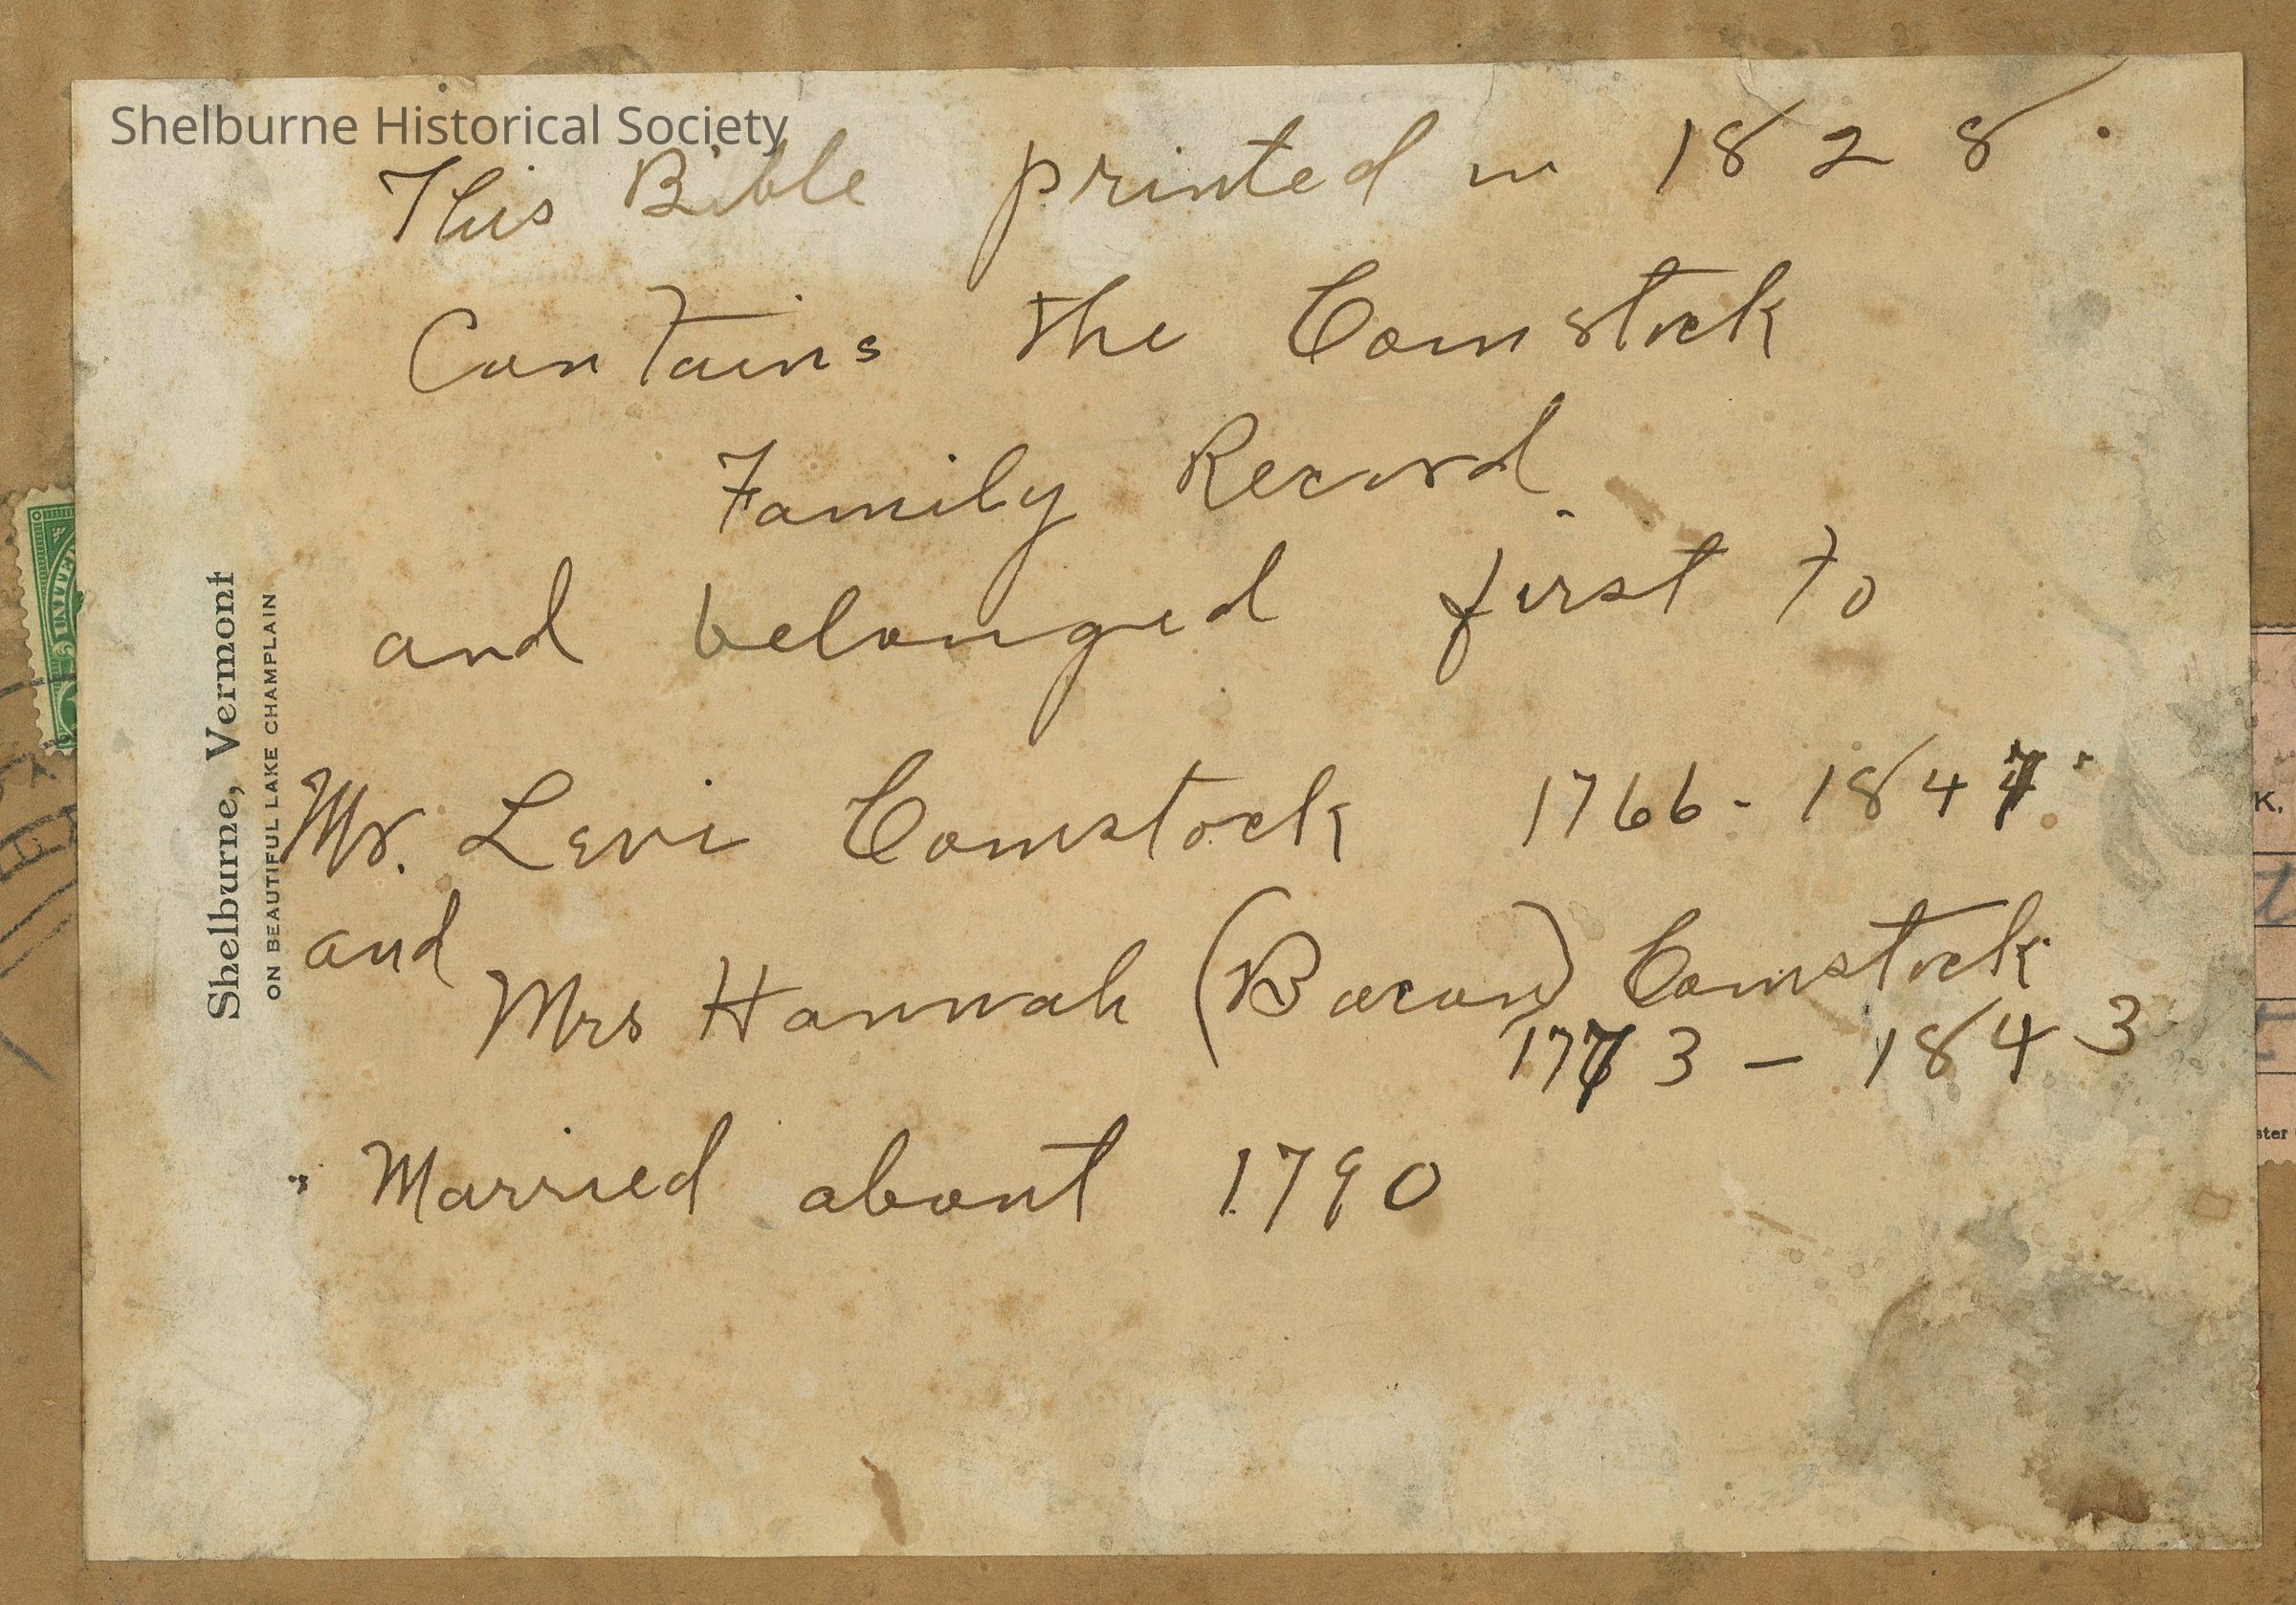 Shelburne Historical Society
This Bible printed in 1828.
Contains the Comstock
Family Record.
and belonged first to
Mr. Levi Comstock 1766 - 1847.
and
Mrs Hannah (Bacon) Comstock
1773 - 1843
Married about 1790
Shelburne, Vermont
ON BEAUTIFUL LAKE CHAMPLAIN
UNITED
K.
ster